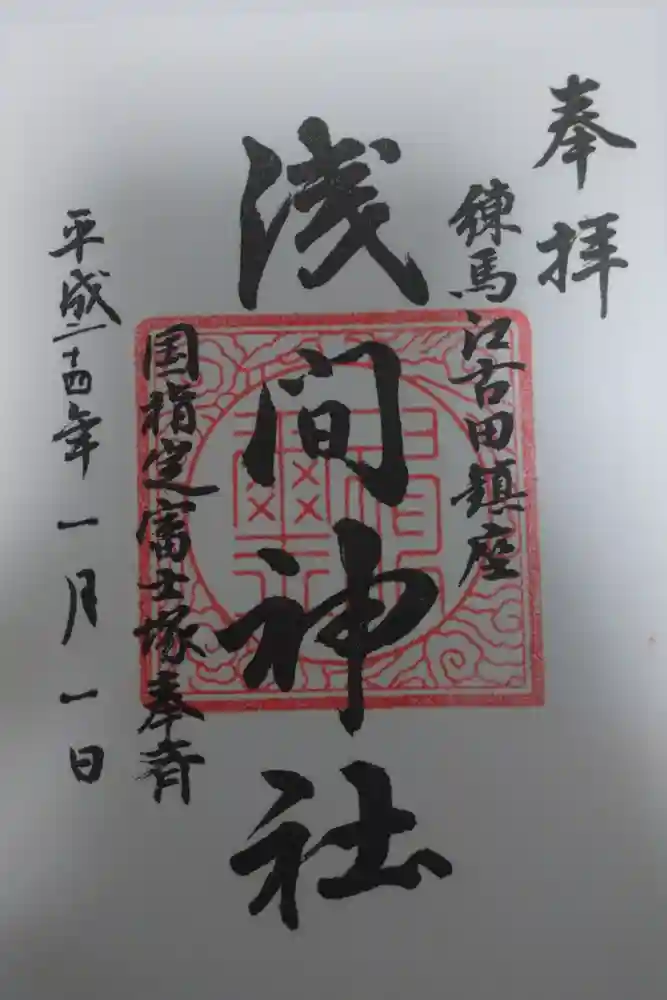 奉拝
練馬江古田鎮座
浅間神社
国指定富士塚奉斉
平成二十四年一月一日